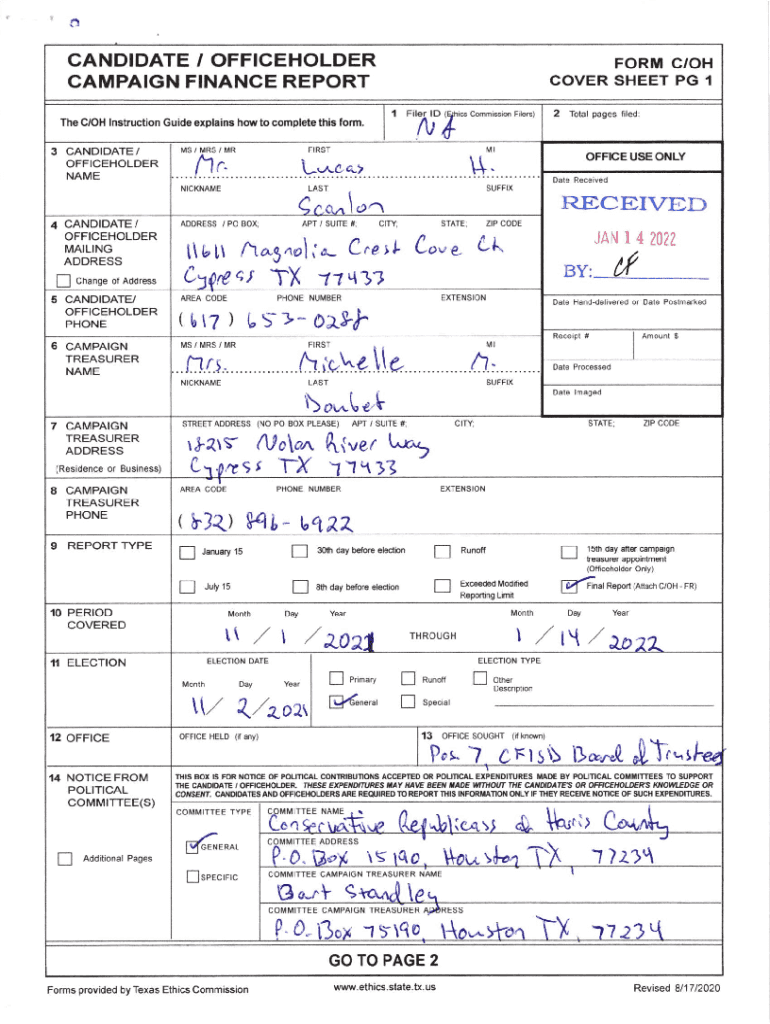 CANDIDATE / OFFICEHOLDER
CAMPAIGN FINANCE REPORT
FORM C/OH
COVER SHEET PG 1
The C/OH Instruction Guide explains how to complete this form.
1 Filer ID (Ethics Commission Filers)
NA
2 Total pages filed:
3 CANDIDATE / OFFICEHOLDER NAME
MS / MRS / MR FIRST MI
Mr. Lucas H.
NICKNAME LAST SUFFIX
Scanlon
OFFICE USE ONLY
Date Received
RECEIVED
JAN 14 2022
BY: CF
4 CANDIDATE / OFFICEHOLDER MAILING ADDRESS
Change of Address
ADDRESS / PO BOX; APT / SUITE #; CITY; STATE; ZIP CODE
11611 Magnolia Crest Cove Ct
Cypress TX 77433
5 CANDIDATE/ OFFICEHOLDER PHONE
AREA CODE PHONE NUMBER EXTENSION
(617) 653-0288
Date Hand-delivered or Date Postmarked
Receipt # Amount $
6 CAMPAIGN TREASURER NAME
MS / MRS / MR FIRST MI
Mrs. Michelle M.
NICKNAME LAST SUFFIX
Doubet
Date Processed
Date Imaged
7 CAMPAIGN TREASURER ADDRESS
(Residence or Business)
STREET ADDRESS (NO PO BOX PLEASE) APT / SUITE #; CITY; STATE; ZIP CODE
18215 Nolan River Way
Cypress TX 77433
8 CAMPAIGN TREASURER PHONE
AREA CODE PHONE NUMBER EXTENSION
(832) 896-6922
9 REPORT TYPE
January 15 30th day before election Runoff 15th day after campaign treasurer appointment (Officeholder Only)
July 15 8th day before election Exceeded Modified Reporting Limit Final Report (Attach C/OH - FR)
10 PERIOD COVERED
Month Day Year Month Day Year
11 / 1 / 2021 THROUGH 1 / 14 / 2022
11 ELECTION
ELECTION DATE ELECTION TYPE
Month Day Year
11/ 2/2021
Primary Runoff Other Description
General Special
12 OFFICE
OFFICE HELD (if any)
13 OFFICE SOUGHT (if known)
Pos. 7, CFISD Board of Trustees
14 NOTICE FROM POLITICAL COMMITTEE(S)
Additional Pages
THIS BOX IS FOR NOTICE OF POLITICAL CONTRIBUTIONS ACCEPTED OR POLITICAL EXPENDITURES MADE BY POLITICAL COMMITTEES TO SUPPORT
THE CANDIDATE / OFFICEHOLDER. THESE EXPENDITURES MAY HAVE BEEN MADE WITHOUT THE CANDIDATE'S OR OFFICEHOLDER'S KNOWLEDGE OR
CONSENT. CANDIDATES AND OFFICEHOLDERS ARE REQUIRED TO REPORT THIS INFORMATION ONLY IF THEY RECEIVE NOTICE OF SUCH EXPENDITURES.
COMMITTEE TYPE
GENERAL
SPECIFIC
COMMITTEE NAME
Conservative Republicass of Harris County
COMMITTEE ADDRESS
P.O. Box 15190, Houston TX, 77234
COMMITTEE CAMPAIGN TREASURER NAME
Bart Standley
COMMITTEE CAMPAIGN TREASURER ADDRESS
P.O. Box 75190, Houston TX, 77234
GO TO PAGE 2
Forms provided by Texas Ethics Commission
www.ethics.state.tx.us
Revised 8/17/2020